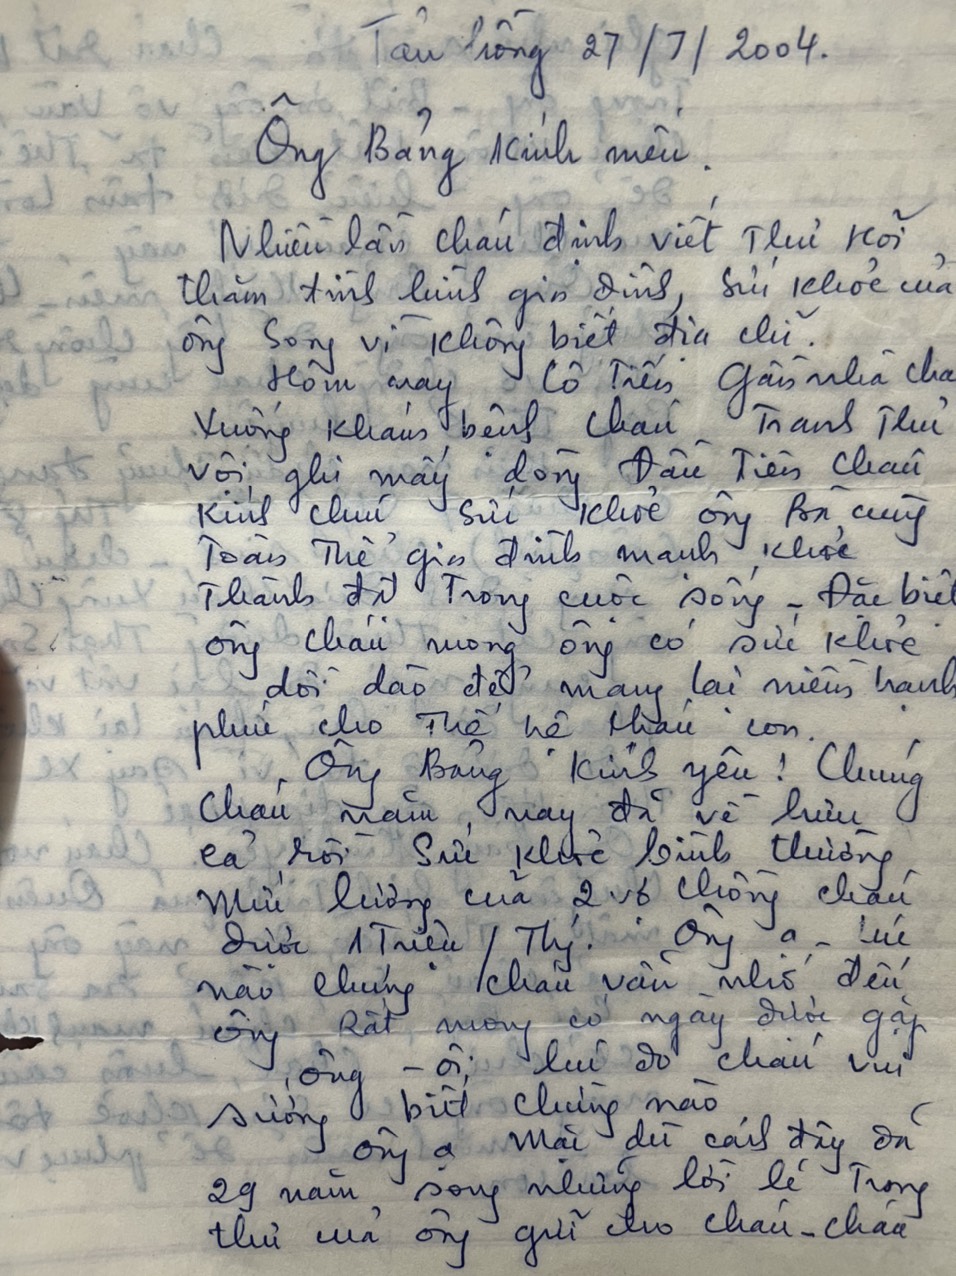 Tân hồng 27/7/2004.
Ông Bảng Kính mến.
Nhiều lần cháu định viết thư hỏi
thăm tình hình gia đình, sức khỏe của
ông Song vì không biết địa chỉ.
Hôm nay Cô Tiến Gần nhà cha
Xuống khám bệnh Cháu Tranh Thủ
vội ghi mấy dòng Đầu Tiên cháu
Kính chúc sức khỏe ông Bà cùng
Toàn Thể gia đình mạnh khỏe
Thành đạt Trong cuộc sống - Đặc biệt
ông cháu mong ông có sức khỏe
dồi dào để mang lại niềm hạnh
phúc cho Thế hệ cháu con.
Ông Bảng Kính yêu! Chúng
Cháu năm nay đã về hưu
cả rồi Sức khỏe bình thường
Mức lương của 2 vợ chồng cháu
được 1 Triệu / Thg. Ông ạ - Lúc
nào chúng cháu vẫn nhớ đến
ông Rất mong có ngày được gặp
ông - ôi, lúc đó cháu vui
sướng biết chừng nào
ông ạ Mặc dù cách đây đã
29 năm song những lời lẽ Trong
thư mà ông gửi cho cháu - cháu